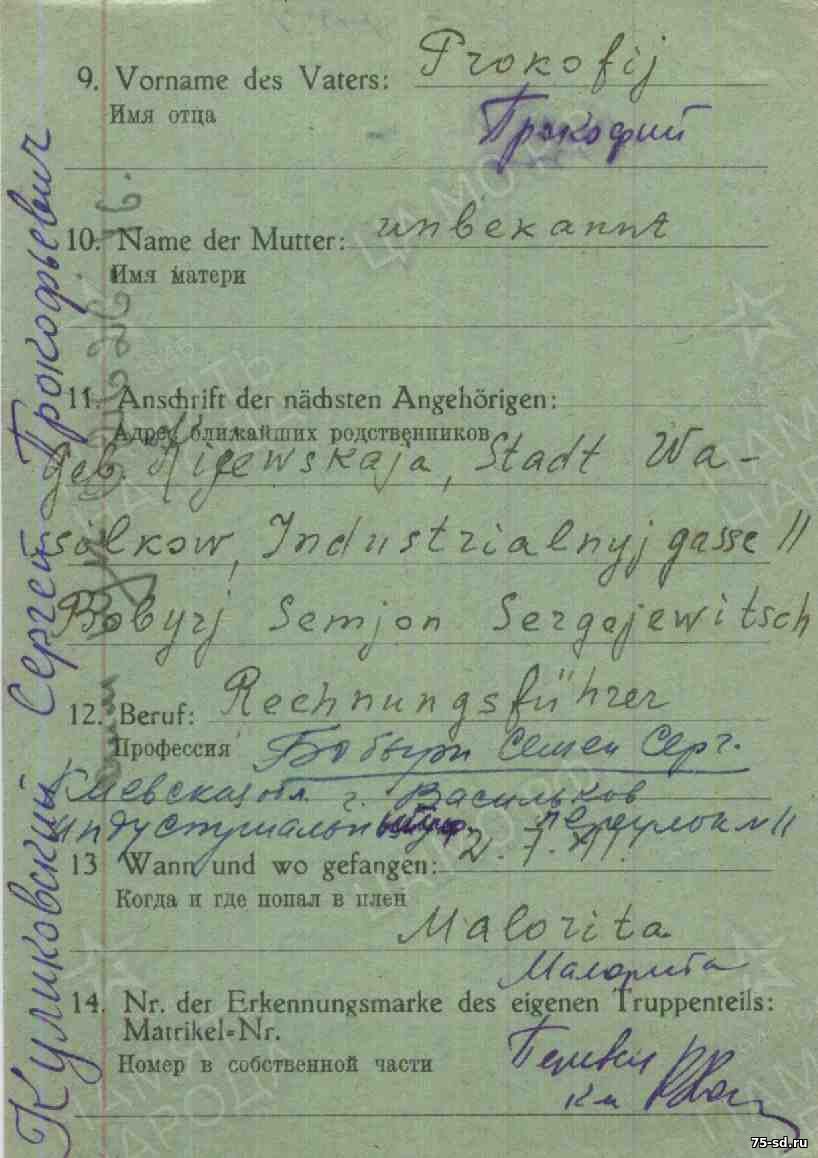 9. Vorname des Vaters: Prokofij
Имя отца
Прокофий
10. Name der Mutter: unbekannt
Имя матери
11. Anschrift der nächsten Angehörigen:
Адрес ближайших родственников
geb. Kijewskaja, Stadt Wa-
silkow, Industrialnyjgasse 11
Bobyrj Semjon Sergejewitsch
12. Beruf: Rechnungsführer
Профессия Бобырь Семен Серг.
Киевская обл. г. Васильков
Индустриальный переулок N 11
13 Wann und wo gefangen: 2. 7. 41.
Когда и где попал в плен
Malorita
Малорита
14. Nr. der Erkennungsmarke des eigenen Truppenteils:
Matrikel=Nr.
Номер в собственной части
Куликовский Сергей Прокофьевич
75-sd.ru